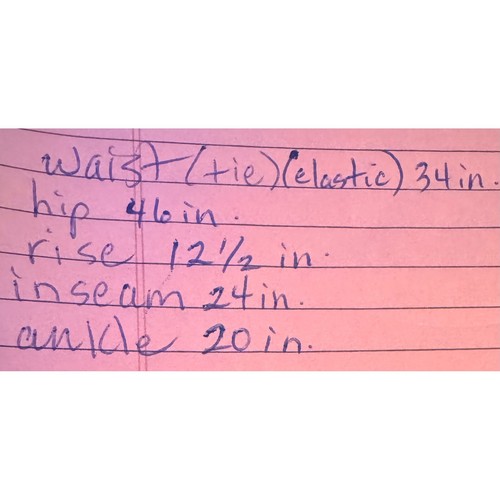 waist (tie) (elastic) 34 in.
hip 46 in.
rise 12 1/2 in.
inseam 24 in.
ankle 20 in.